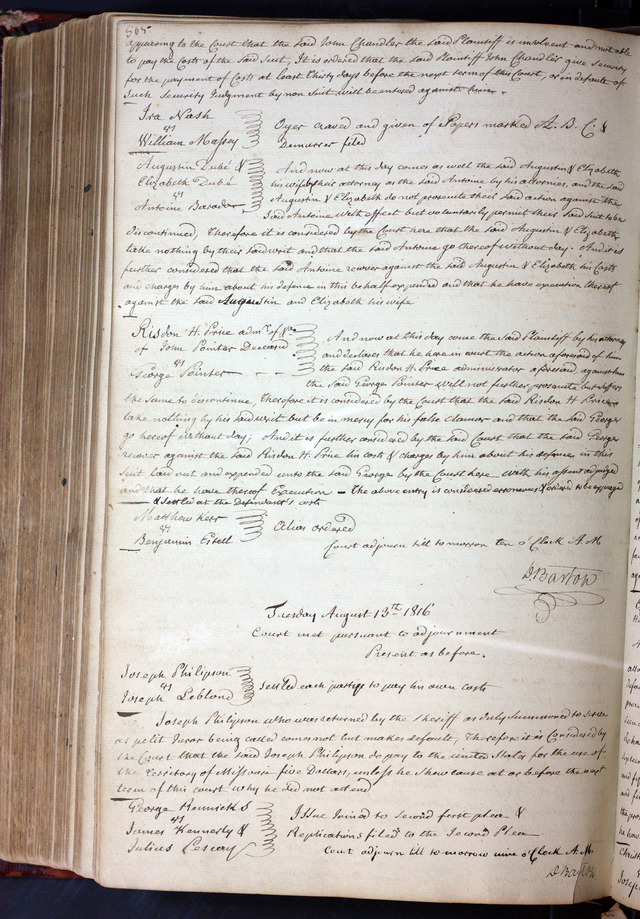 505
appearing to the Court that the said John Chandler the said Plaintiff is insolvent and not able
to pay the Costs of the said Suit, It is ordered that the said Plaintiff John Chandler give security
for the payment of Costs at least thirty days before the next term of this Court, or in default of
such Security Judgment by non suit will be entered against him.
Ira Nash
vs
William Massey
Oyer craved and given of Papers marked A. B. C. &
Demurrer filed
Augustin Dubé &
Elizabeth Dubé
vs
Antoine Barada
And now at this day comes as well the said Augustin & Elizabeth
his wife by their attorney as the said Antoine by his attornies, and the said
Augustin & Elizabeth do not prosecute their said action against the
said Antoine with effect but voluntarily permit their said suit to be
discontinued, Therefore it is considered by the Court here that the said Augustin & Elizabeth
take nothing by their said writ and that the said Antoine go thereof without day. And it is
further considered that the said Antoine recover against the said Augustin & Elizabeth his Costs
and charges by him about his defence in this behalf expended and that he have execution thereof
against the said Augustin and Elizabeth his wife
Risdon H. Price admr. of &ca
of John Pointer Deceased
vs
George Pointer - - -
And now at this day come the said Plaintiff by his attorney
and declares that he here in court the action aforesaid of him
the said Risdon H. Price administrator aforesaid, against him
the said George Pointer will not further prosecute but suffers
the same to discontinue Therefore it is considered by the Court that the said Risdon H. Price
take nothing by his said writ but be in mercy for his false clamor and that the said George
go hereof without day; And it is further considered by the said Court that the said George
recover against the said Risdon H. Price his cost & charges by him about his defence in this
suit laid out and expended unto the said George by the Court here with his assent adjudged
and that he have thereof Execution — The above entry is considered erroneous & ordered to be expunged
& settled at the Defendant's costs
Matthew Kerr
vs
Benjamin Estell
Alias ordered
Court adjourn till tomorrow ten o'Clock A.M
D. Barton
Tuesday August 13th 1816
Court met pursuant to adjournment
Present as before.
Joseph Philipson
vs
Joseph Leblond
settled each party to pay his own costs
Joseph Philipson who was returned by the Sheriff as duly summoned to serve
as petit Juror being called comes not but makes default, Therefore it is Considered by
the Court that the said Joseph Philipson do pay to the united States for the use of
the Territory of Missouri five Dollars, unless he show cause at or before the next
term of this court why he did not attend
George Rennicks
vs
James Kennerly &
Julius Lescay
Issue Joined to second first plea &
Replications filed to the Second Plea
Court adjourn till to morrow nine o'Clock A.M.
D. Barton